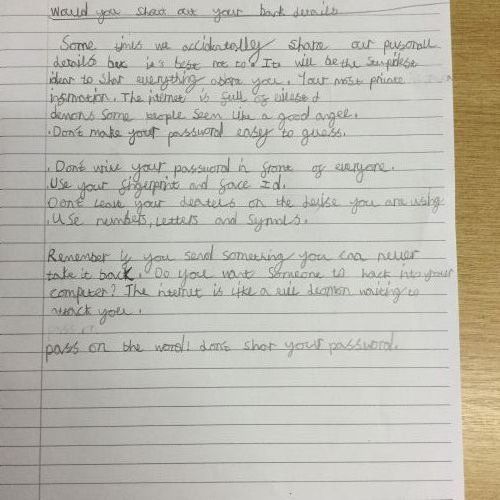 Would you shout out your bank details
Some times we accidentally share our pursonall
details but it's best not to. It will be the stupidest
idear to shar everything about you. Your most private
information. The internet is full of
demons some people seem like a good angel.
. Don't make your password easy to guess.
. Don't write your password in front of everyone.
. Use your fingerprint and face Id.
Dont leave your deatels on the devise you are using
. Use numbers, letters and symbols.
Remember if you send something you can never
take it back. Do you want someone to hack into your
computer? The internet is like a evil demon waiting to
attack you.
pass on the word! dont shar your password.